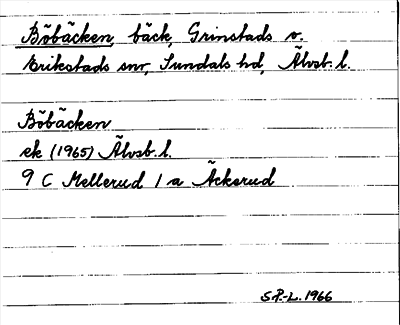 Böbäcken, bäck, Grinstads o.
Erikstads snr, Sundals hd, Älvsb. l.
Böbäcken
ek (1965) Älvsb. l.
9 C Mellerud 1 a Äckerud
S.P.-L. 1966